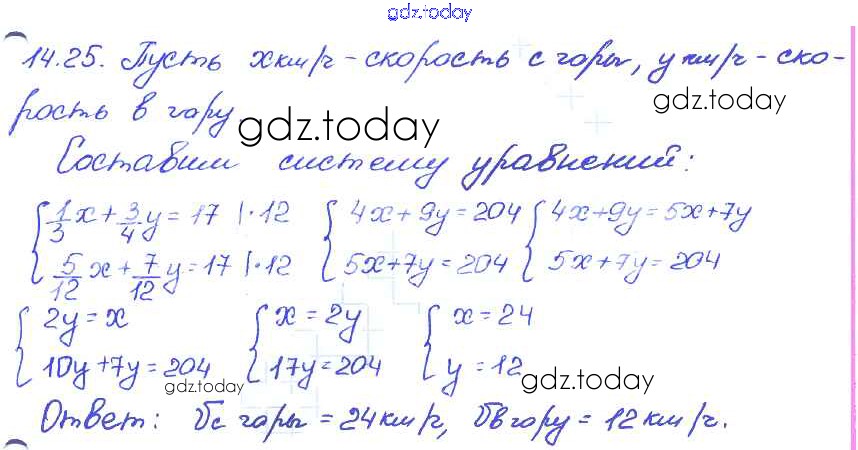 gdz.today
14.25. Пусть x км/ч - скорость с горы, y км/ч - ско-
рость в гору.
gdz.today
gdz.today
Составим систему уравнений:
{ 1/3 x + 3/4 y = 17 |·12 { 4x + 9y = 204 { 4x + 9y = 5x + 7y
5/12 x + 7/12 y = 17 |·12 5x + 7y = 204 5x + 7y = 204
{ 2y = x { x = 2y { x = 24
10y + 7y = 204 17y = 204 y = 12
gdz.today
gdz.today
Ответ: Vс горы = 24 км/ч, Vв гору = 12 км/ч.